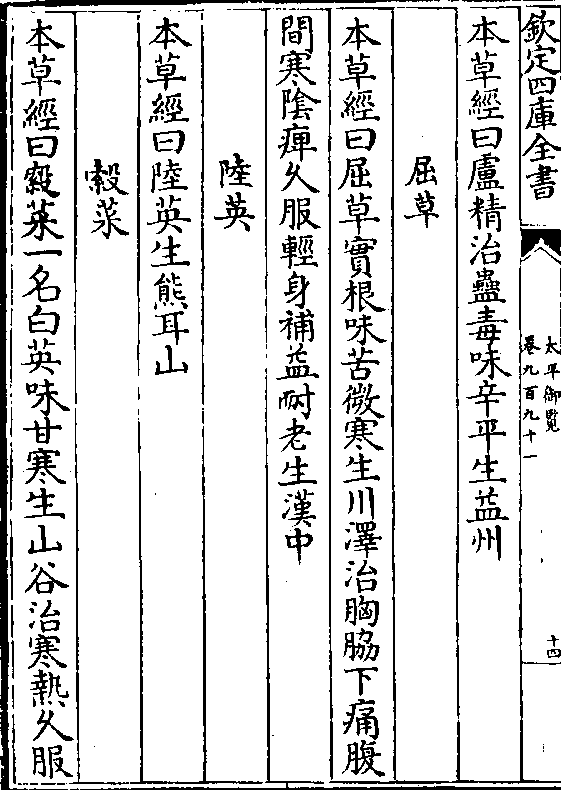 欽定四庫全書
太平御覽
卷九百九十一
十四
本草經曰盧精治蠱毒味辛平生益州
屈草
本草經曰屈草實根味苦微寒生川澤治胸脇下痛腹
間寒陰痺久服輕身補益耐老生漢中
陸英
本草經曰陸英生熊耳山
糓菜
本草經曰糓菜一名白英味甘寒生山谷治寒熱久服